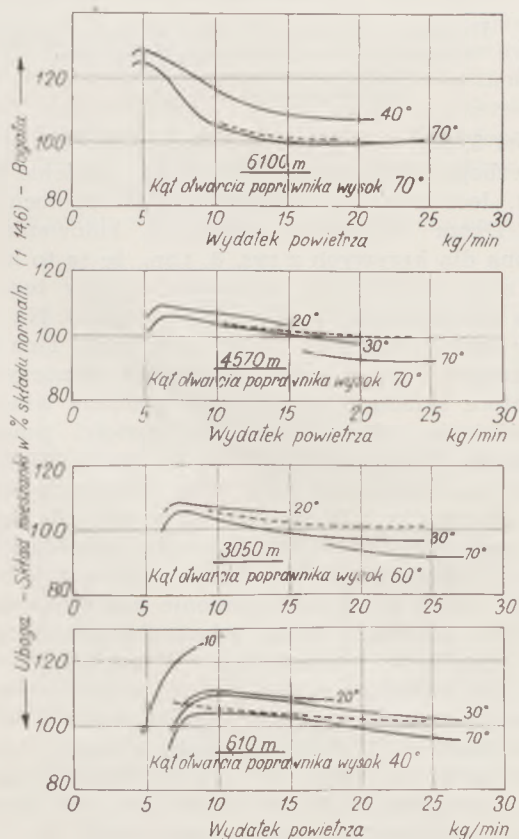 Uboga - Skład mieszanki w % składu normaln (1 14,6) - Bogata
120
100
80
40°
70°
6100 m
Kąt otwarcia poprawnika wysok 70°
0 5 10 15 20 25 30
Wydatek powietrza kg/min
100
80
20°
30°
70°
4570 m
Kąt otwarcia poprawnika wysok 70°
0 5 10 15 20 25 30
Wydatek powietrza kg/min
100
80
20°
30°
70°
3050 m
Kąt otwarcia poprawnika wysok 60°
120
100
80
10°
20°
30°
70°
610 m
Kąt otwarcia poprawnika wysok 40°
0 5 10 15 20 25 30
Wydatek powietrza kg/min